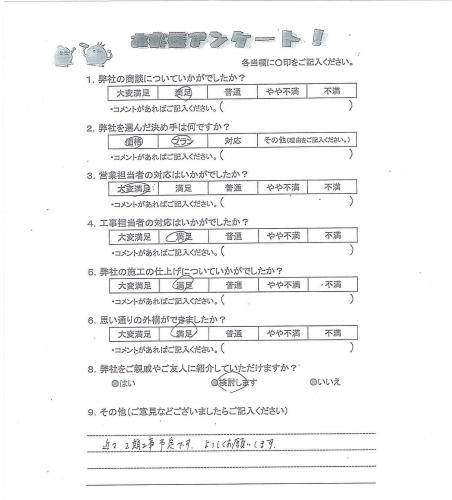 お客様アンケート！
各当欄に〇印をご記入ください。
1. 弊社の商談についていかがでしたか？
大変満足 満足 普通 やや不満 不満
・コメントがあればご記入ください。（ ）
2. 弊社を選んだ決め手は何ですか？
価格 プラン 対応 その他（理由をご記入ください。）
・コメントがあればご記入ください。（ ）
3. 営業担当者の対応はいかがでしたか？
大変満足 満足 普通 やや不満 不満
・コメントがあればご記入ください。（ ）
4. 工事担当者の対応はいかがでしたか？
大変満足 満足 普通 やや不満 不満
・コメントがあればご記入ください。（ ）
5. 弊社の施工の仕上げについていかがでしたか？
大変満足 満足 普通 やや不満 不満
・コメントがあればご記入ください。（ ）
6. 思い通りの外構ができましたか？
大変満足 満足 普通 やや不満 不満
・コメントがあればご記入ください。（ ）
8. 弊社をご親戚やご友人に紹介していただけますか？
◎はい ◎検討します ◎いいえ
9. その他（ご意見などございましたらご記入ください）
近々 2期工事予定です。よろしくお願いします。